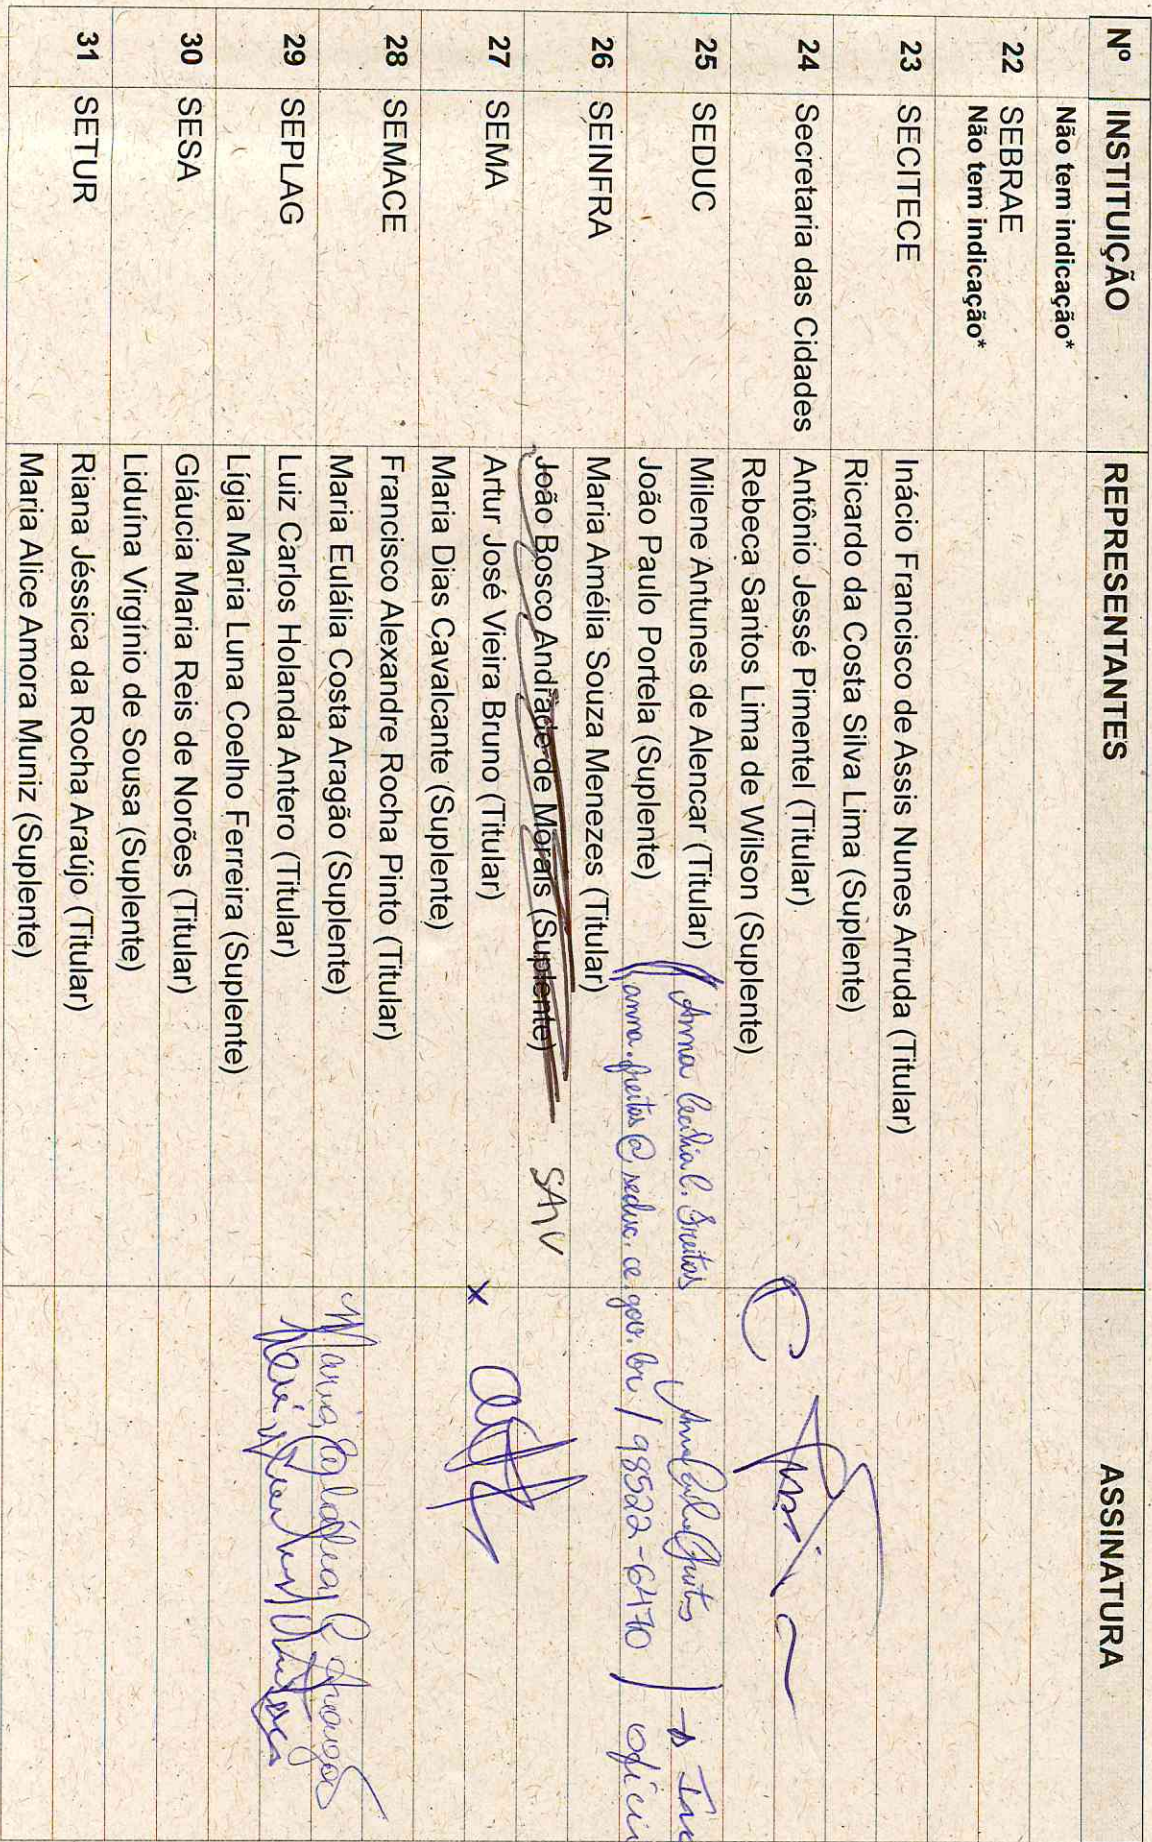 Nº INSTITUIÇÃO REPRESENTANTES ASSINATURA
Não tem indicação*
22 SEBRAE
Não tem indicação*
23 SECITECE Inácio Francisco de Assis Nunes Arruda (Titular)
Ricardo da Costa Silva Lima (Suplente)
24 Secretaria das Cidades Antônio Jessé Pimentel (Titular)
Rebeca Santos Lima de Wilson (Suplente)
25 SEDUC Milene Antunes de Alencar (Titular) Anna Cecília C. Freitas
João Paulo Portela (Suplente) anna.freitas@seduc.ce.gov.br / 98522-6470
26 SEINFRA Maria Amélia Souza Menezes (Titular)
João Bosco Andrade de Morais (Suplente)
27 SEMA Artur José Vieira Bruno (Titular) x
Maria Dias Cavalcante (Suplente)
28 SEMACE Francisco Alexandre Rocha Pinto (Titular)
Maria Eulália Costa Aragão (Suplente) Maria Eulália C. Aragão
29 SEPLAG Luiz Carlos Holanda Antero (Titular)
Lígia Maria Luna Coelho Ferreira (Suplente)
30 SESA Gláucia Maria Reis de Norões (Titular)
Liduína Virgínio de Sousa (Suplente)
31 SETUR Riana Jéssica da Rocha Araújo (Titular)
Maria Alice Amora Muniz (Suplente)